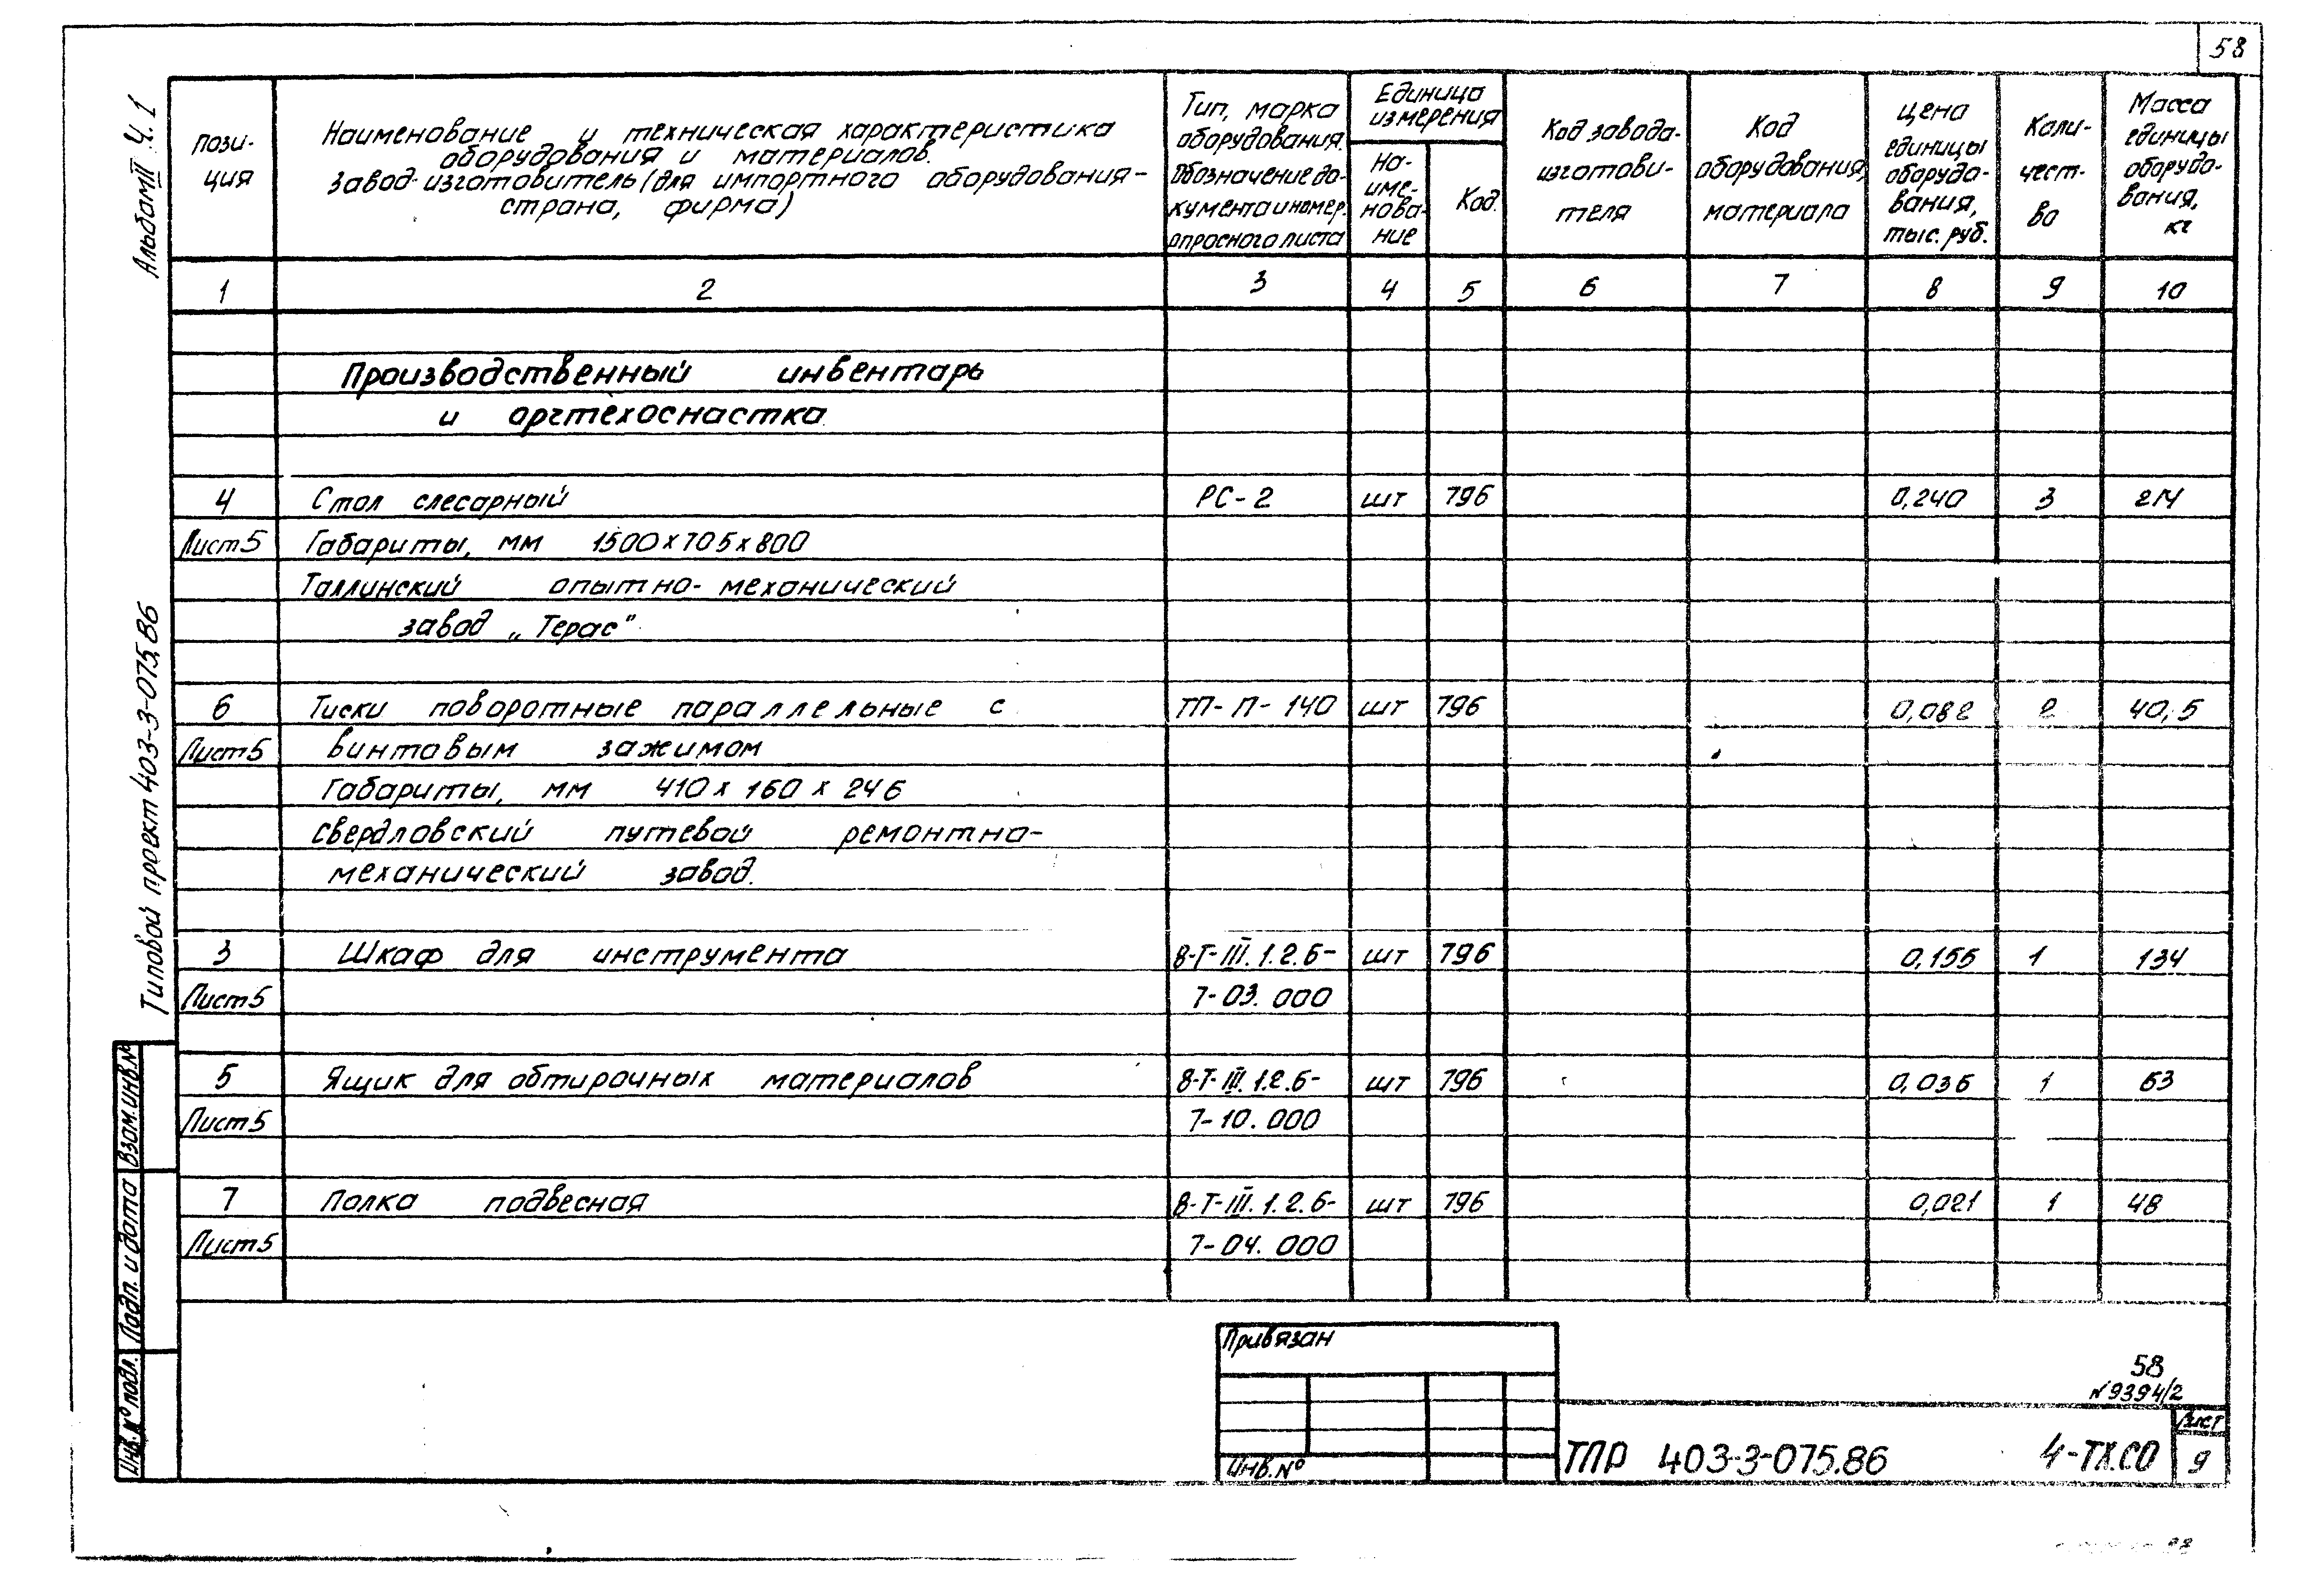 58
Альбом III Ч.1
Типовой проект 403-3-075.86
Пози-
ция
Наименование и техническая характеристика
оборудования и материалов.
Завод-изготовитель (для импортного оборудования-
страна, фирма)
Тип, марка
оборудования.
Обозначение до-
кумента и номер.
опросного листа
Единица
измерения
На-
име-
нова-
ние
Код.
Код завода-
изготови-
теля
Код
оборудования,
материала
Цена
единицы
оборудо-
вания,
тыс. руб.
Коли-
чест-
во
Масса
единицы
оборудо-
вания,
кг
1 2 3 4 5 6 7 8 9 10
Производственный инвентарь
и оргтехоснастка
4 Стол слесарный РС-2 шт 796 0,240 3 214
Лист 5 Габариты, мм 1500х705х800
Таллинский опытно-механический
завод „Терас"
6 Тиски поворотные параллельные с ТП-П-140 шт 796 0,082 2 40,5
Лист 5 винтовым зажимом
Габариты, мм 410 х 160 х 246
Свердловский путевой ремонтно-
механический завод.
3 Шкаф для инструмента 8-Т-III.1.2.6- шт 796 0,155 1 134
Лист 5 7-03.000
5 Ящик для обтирочных материалов 8-Т-III.1.2.6- шт 796 0,036 1 63
Лист 5 7-10.000
7 Полка подвесная 8-Т-III.1.2.6- шт 796 0,021 1 48
Лист 5 7-04.000
Взам.инв.№
Подп. и дата
Инв.№ подл.
Привязан
Инв.№
58
N9394/2
ТПР 403-3-075.86 4-ТХ.СО
Лист
9